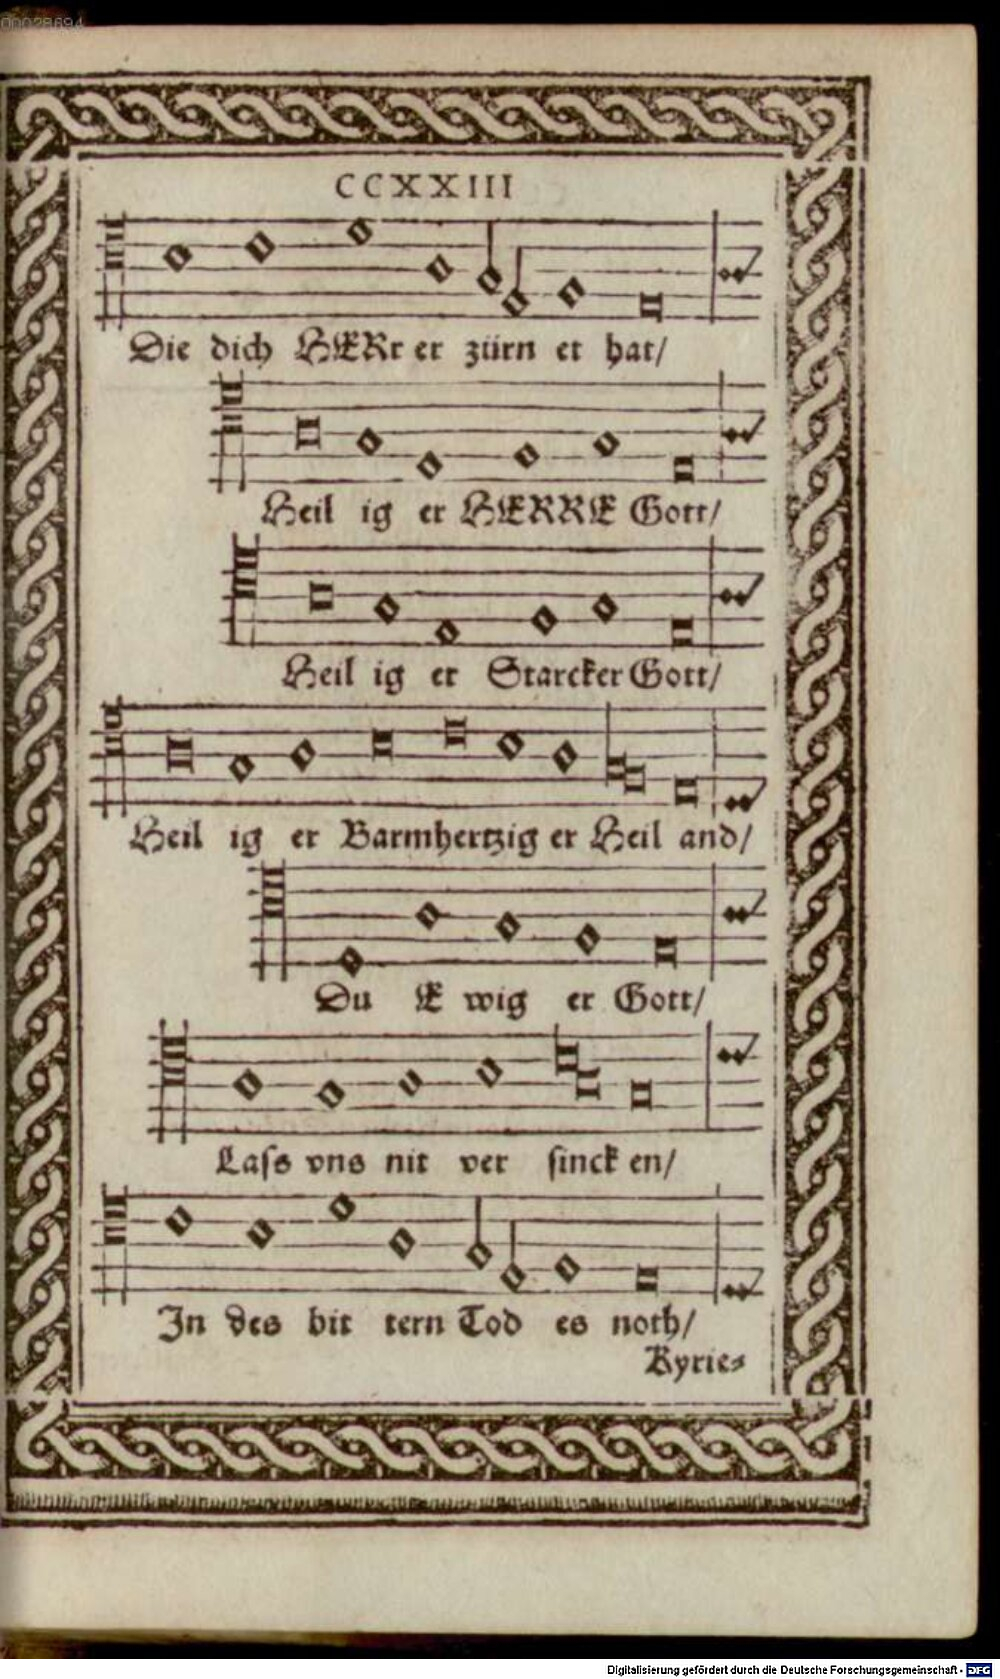 00028694
CCXXIII
Die dich HERr er zürn et hat/
Heil ig er HERRE Gott/
Heil ig er Starcker Gott/
Heil ig er Barmhertzig er Heil and/
Du E wig er Gott/
Lass vns nit ver sinck en/
In des bit tern Tod es noth/
Kyrie=
Digitalisierung gefördert durch die Deutsche Forschungsgemeinschaft - DFG